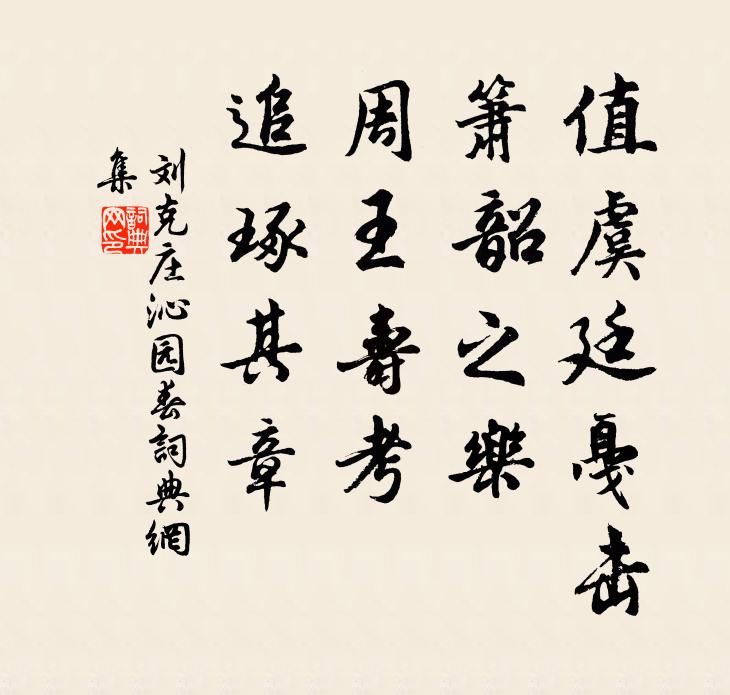 值虞廷戛击
箫韶之樂
周王壽考
追琢其章
刘克庄沁园春詞典網
集
詞典網印